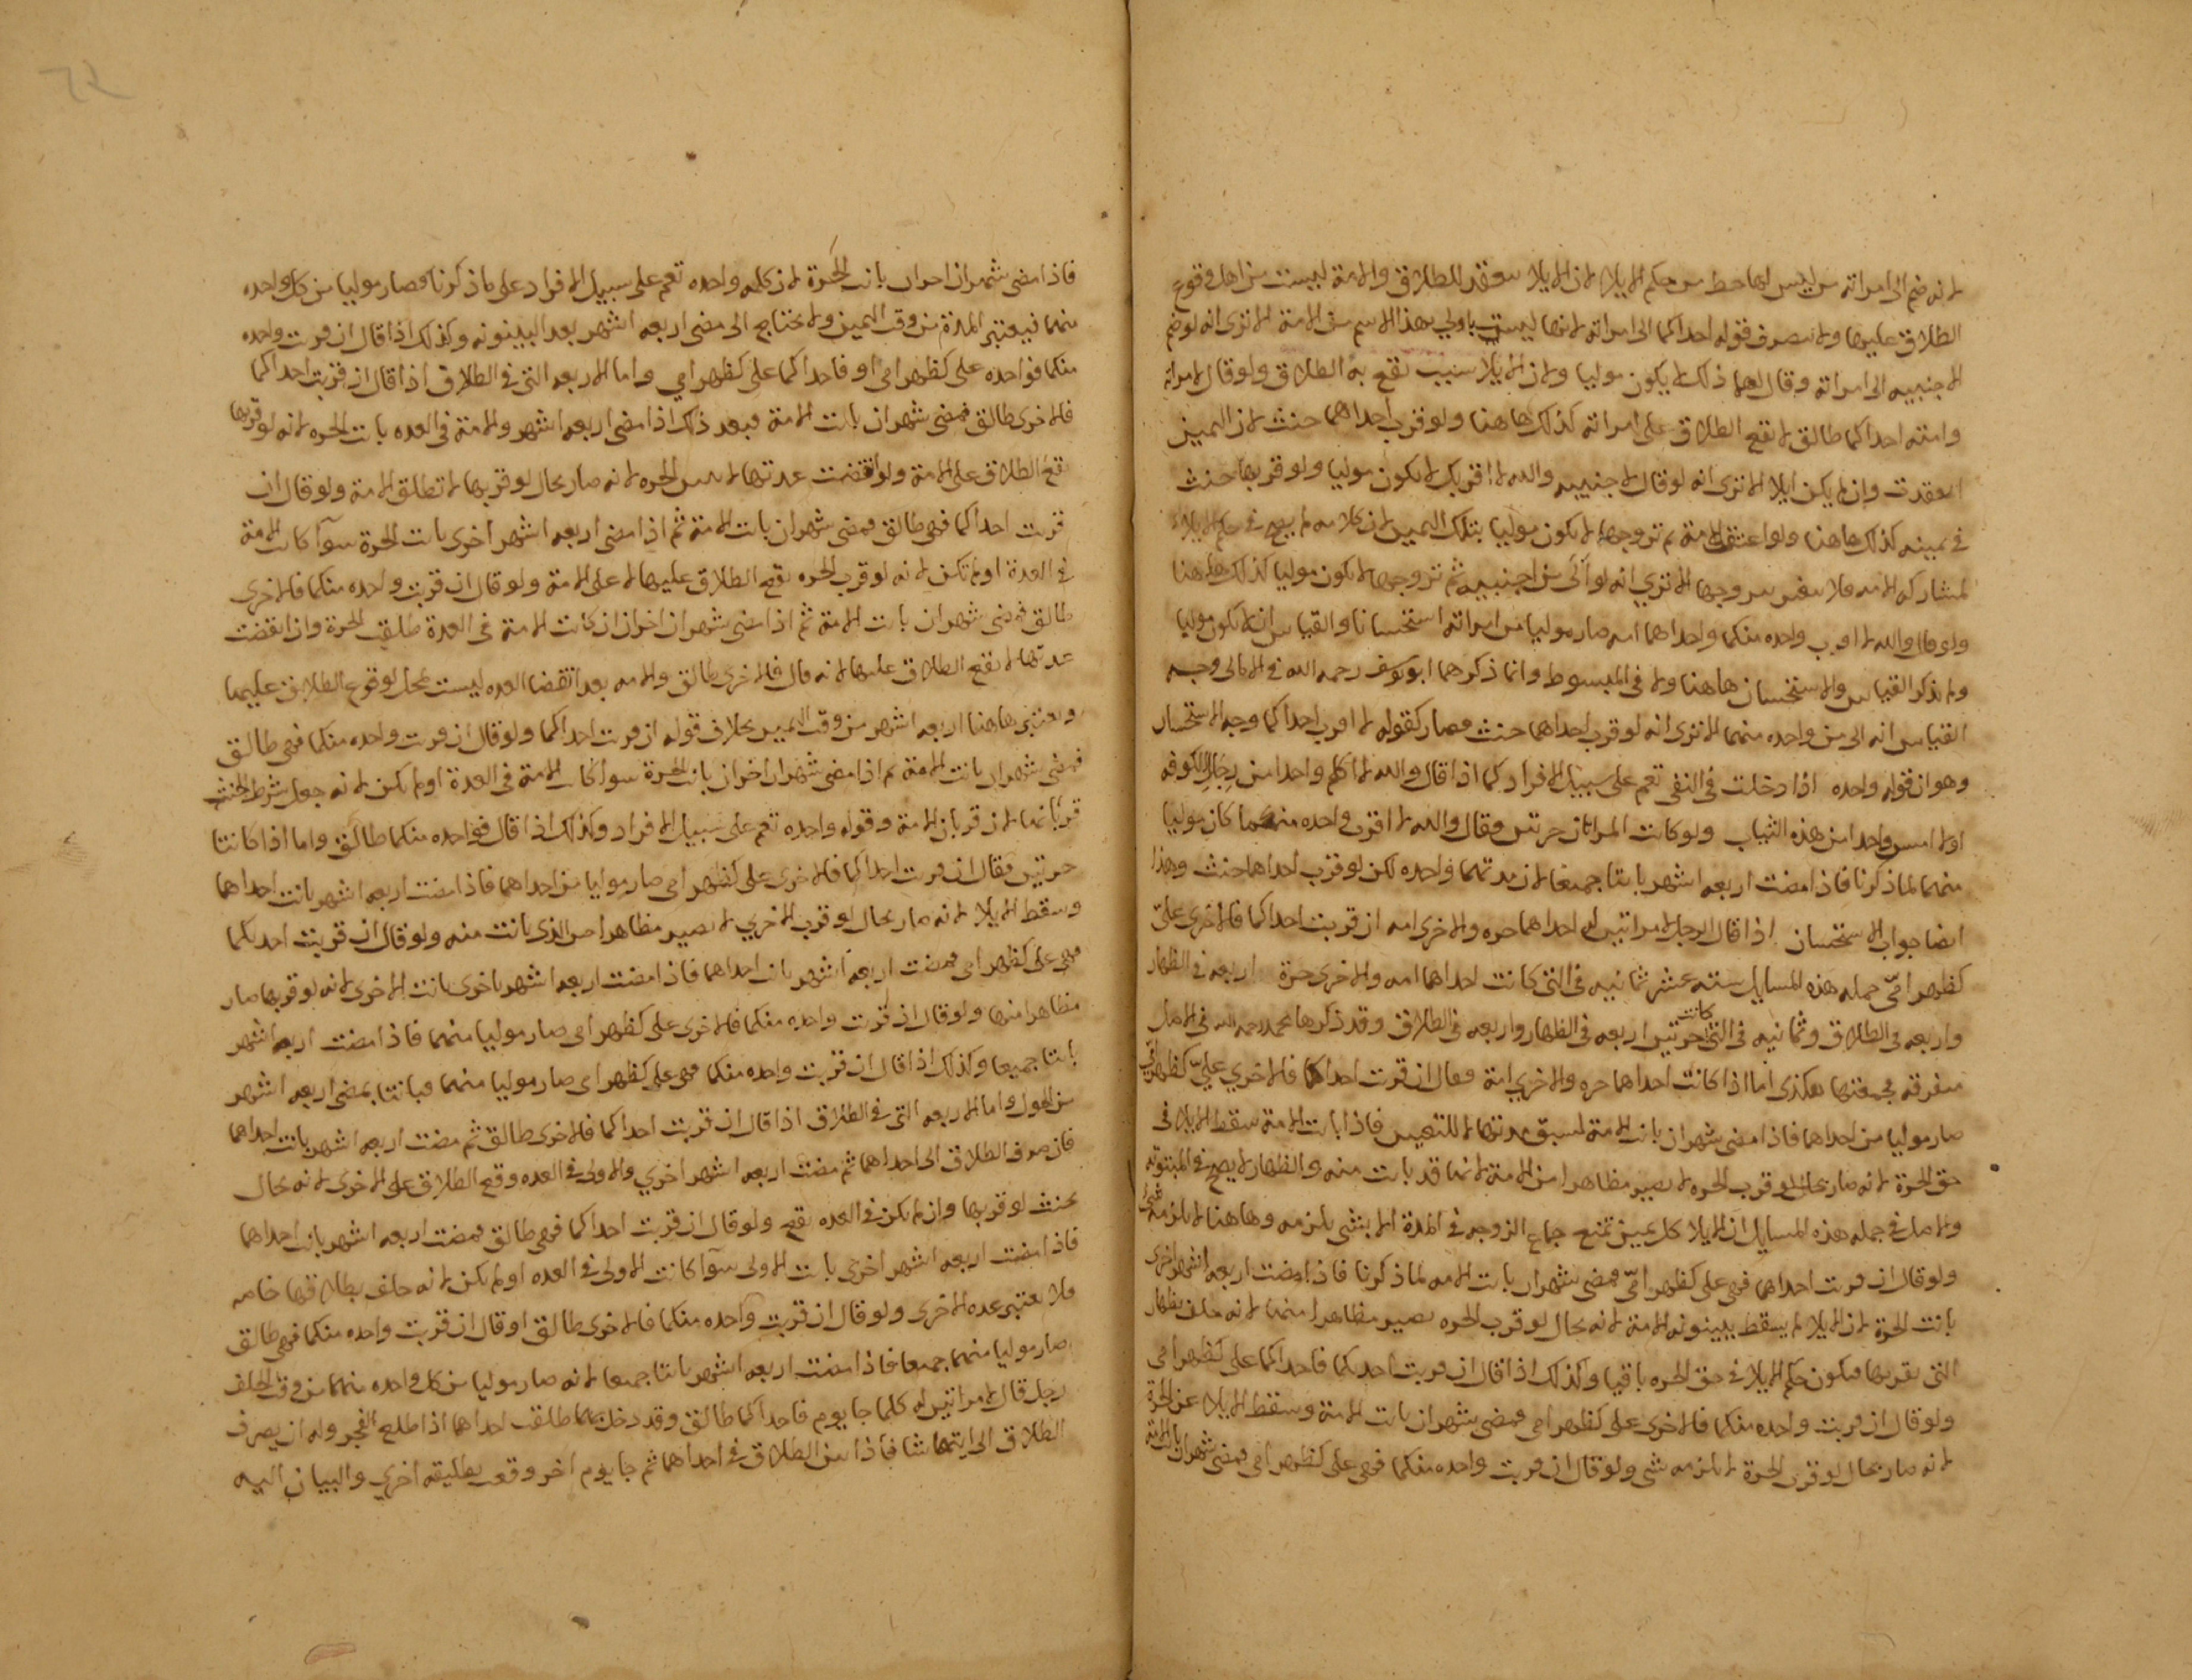 لانه ضم الى امراته من ليس لها حظ من حكم الايلا لان الايلا ينعقد للطلاق والامة ليست من اهل وقوع
الطلاق عليها ولا ينصرف قوله احداكما الى امراته لانها ليست باولى بهذا الاسم من الامة الا ترى انه لو ضم
الاجنبيه الى امراته وقال لهما ذلك لم يكون موليا ولان الايلا سبب تقع به الطلاق ولو قال لامراته
وامته احداكما طالق لا تقع الطلاق على امراته كذلك هاهنا ولو قرب احداهما حنث لان اليمين
انعقدت وان لم يكن ايلا الا ترى انه لو قال لاجنبيه والله لا اقربك لا يكون موليا ولو قربها حنث
في يمينه كذلك هاهنا ولو اعتق الامة ثم تزوجها لا يكون موليا بتلك اليمين لان كلامه لم يصح في حكم الايلاء
لمشاركه الامه فلا بتزوجها الا ترى انه لو آلى من اجنبيه ثم تزوجها لا يكون موليا كذلك هاهنا
ولو قال والله لا اقرب واحده منكما واحداهما امه صار موليا من امراته استحسانا والقياس ان لا يكون موليا
ولم يذكر القياس والاستحسان هاهنا ولا في المبسوط وانما ذكرهما ابو يوسف رحمه الله في الامالي وجه
القياس انه الى من واحده منهما الا ترى انه لو قرب احداهما حنث فصار كقوله لا اقرب احداكما وجه الاستحسان
وهو ان قوله واحده اذا دخلت في النفي تعم على سبيل الافراد كما اذا قال والله لا اكلم واحدا من رجال الكوفه
او لا امس واحدا من هذه الثياب ولو كانت المراتان حرتين فقال والله لا اقرب واحده منكما كان موليا
منهما لما ذكرنا فاذا مضت اربعه اشهر بانتا جميعا لان مدتهما واحده لكن لو قرب احداها حنث وهذا
ايضا جواب الاستحسان اذا قال الرجل لامراتين له احداهما حره والاخرى امه ان قربت احداكما فالاخرى على
كظهر امّي جمله هذه المسايل ستة عشر ثمانيه في التي كانت احداهما امه والاخرى حرة اربعه في الظهار
واربعه في الطلاق وثمانيه في التي كانت حرتين اربعه في الظهار واربعه في الطلاق وقد ذكرها محمد رحمه الله في الاصل
متفرقه فجمعتها هكذى اما اذا كانت احداهما حره والاخرى امة فقال ان قربت احداكما فالاخري عليّ كظهر امي
صار موليا من احداهما فاذا مضى شهران بانت الامة لسبق مدتها لا للتعيين فاذا بانت الامة سقط الايلا في
حق الحرة لانه صار بحال لو قرب الحره لا يصير مظاهرا من الامة لانها قد بانت منه والظهار لا يصح في المبتوته
والاصل في جمله هذه المسايل ان الايلا كل يمين تمنع جماع الزوجه في المدة الا بشي يلزمه وهاهنا لا يلزمه شي
ولو قال ان قربت احداهما فهي على كظهر امّي فمضى شهران بانت الامه لما ذكرنا فاذا مضت اربعه اشهر اخرى
بانت الحرة لان الايلا لم يسقط ببينونه الامة لانه بحال لو قرب الحره يصير مظاهرا منها لانه حلف بظهار
التي يقربها فيكون حكم الايلا في حق الحره باقيا وكذلك اذا قال ان قربت احديكما فاحداكما على كظهر امي
ولو قال ان قربت واحده منكما فالاخرى على كظهر امي فمضى شهران بانت الامة وسقط الايلا عن الحرة
لانه صار بحال لو قرب الحرة لا يلزمه شي ولو قال ان قربت واحده منكما فهي على كظهر امي فمضى شهران بانت الامة
فاذا مضى شهران اخران بانت الحرة لان كلمه واحده تعم على سبيل الافراد على ما ذكرنا فصار موليا من كل واحده
منهما فيعتبر المدة من وقت اليمين ولا يحتاج الى مضى اربعه اشهر بعد البينونه وكذلك اذا قال ان قربت واحده
منكما فواحده على كظهر امي او فاحداكما على كظهر امي واما الاربعه التي في الطلاق اذا قال ان قربت احداكما
فالاخرى طالق فمضى شهران بانت الامة فبعد ذلك اذا مضى اربعه اشهر والامة في العده بانت الحره لانه لو قربها
تقع الطلاق على الامة ولو انقضت عدتها لا تبين الحره لانه صار بحال لو قربها لا تطلق الامة ولو قال ان
قربت احداكما فهي طالق فمضى شهران بانت الامة ثم اذا مضى اربعه اشهر اخرى بانت الحرة سوآ كانت الامة
في العدة او لم تكن لانه لو قرب الحره تقع الطلاق عليها لا على الامة ولو قال ان قربت واحده منكما فالاخرى
طالق فمضى شهران بانت الامة ثم اذا مضى شهران اخران ان كانت الامة في العدة طلقت الحرة وان انقضت
عدتها لا تقع الطلاق عليها لانه قال فالاخرى طالق والامه بعد انقضا العده ليست بمحل لوقوع الطلاق عليها
ويعتبر هاهنا اربعه اشهر من وقت اليمين بخلاف قوله ان قربت احداكما ولو قال ان قربت واحده منكما فهي طالق
فمضى شهران بانت الامة ثم اذا مضى شهران اخران بانت الحرة سوا كانت الامة في العدة او لم يكن لانه جعل شرط الحنث
قربانها لا قربان الامة وقوله واحده تعم على سبيل الافراد وكذلك اذا قال فواحده منكما طالق واما اذا كانتا
حرتين فقال ان قربت احداكما فالاخرى على كظهر امي صار موليا من احداهما فاذا مضت اربعه اشهر بانت احداهما
وسقط الايلا لانه صار بحال لو قرب الاخري لا يصير مظاهرا من الذي بانت منه ولو قال ان قربت احديكما
فهي على كظهر امي فمضت اربعه اشهر بانت احداهما فاذا مضت اربعه اشهر اخرى بانت الاخرى لانه لو قربها صار
مظاهرا منها ولو قال ان قربت واحده منكما فالاخرى على كظهر امي صار موليا منهما فاذا مضت اربعه اشهر
بانتا جميعا وكذلك اذا قال ان قربت واحده منكما فهي على كظهر امي صار موليا منهما فبانتا بمضى اربعه اشهر
اما الاربعه التي في الطلاق اذا قال ان قربت احداكما فالاخرى طالق ثم مضت اربعه اشهر بانت احداهما
فان صرف الطلاق الى احداهما ثم مضت اربعه اشهر اخري والاولى في العده وقع الطلاق على الاخرى لانه بحال
يحنث لو قربها وان لم يكن في العده تقع ولو قال ان قربت احداكما فهي طالق فمضت اربعه اشهر بانت احداهما
فاذا مضت اربعه اشهر اخرى بانت الاولى سوآ كانت الاولى في العده او لم يكن لانه حلف بطلاقها خاصه
فلا يعتبر عده الاخرى ولو قال ان قربت واحده منكما فالاخرى طالق او قال ان قربت واحده منكما فهي طالق
صار موليا منهما جميعا فاذا مضت اربعه اشهر بانتا جميعا لانه صار موليا من كل واحده منهما من وقت الحلف
رجل قال لامراتين له كلما جا يوم فاحداكما طالق وقد دخل بهما طلقت احداهما اذا طلع الفجر وله ان يصرف
الطلاق الى ايتهما شا فاذا بين الطلاق في احداهما ثم جا يوم اخر وقعت تطليقه اخري والبيان اليه